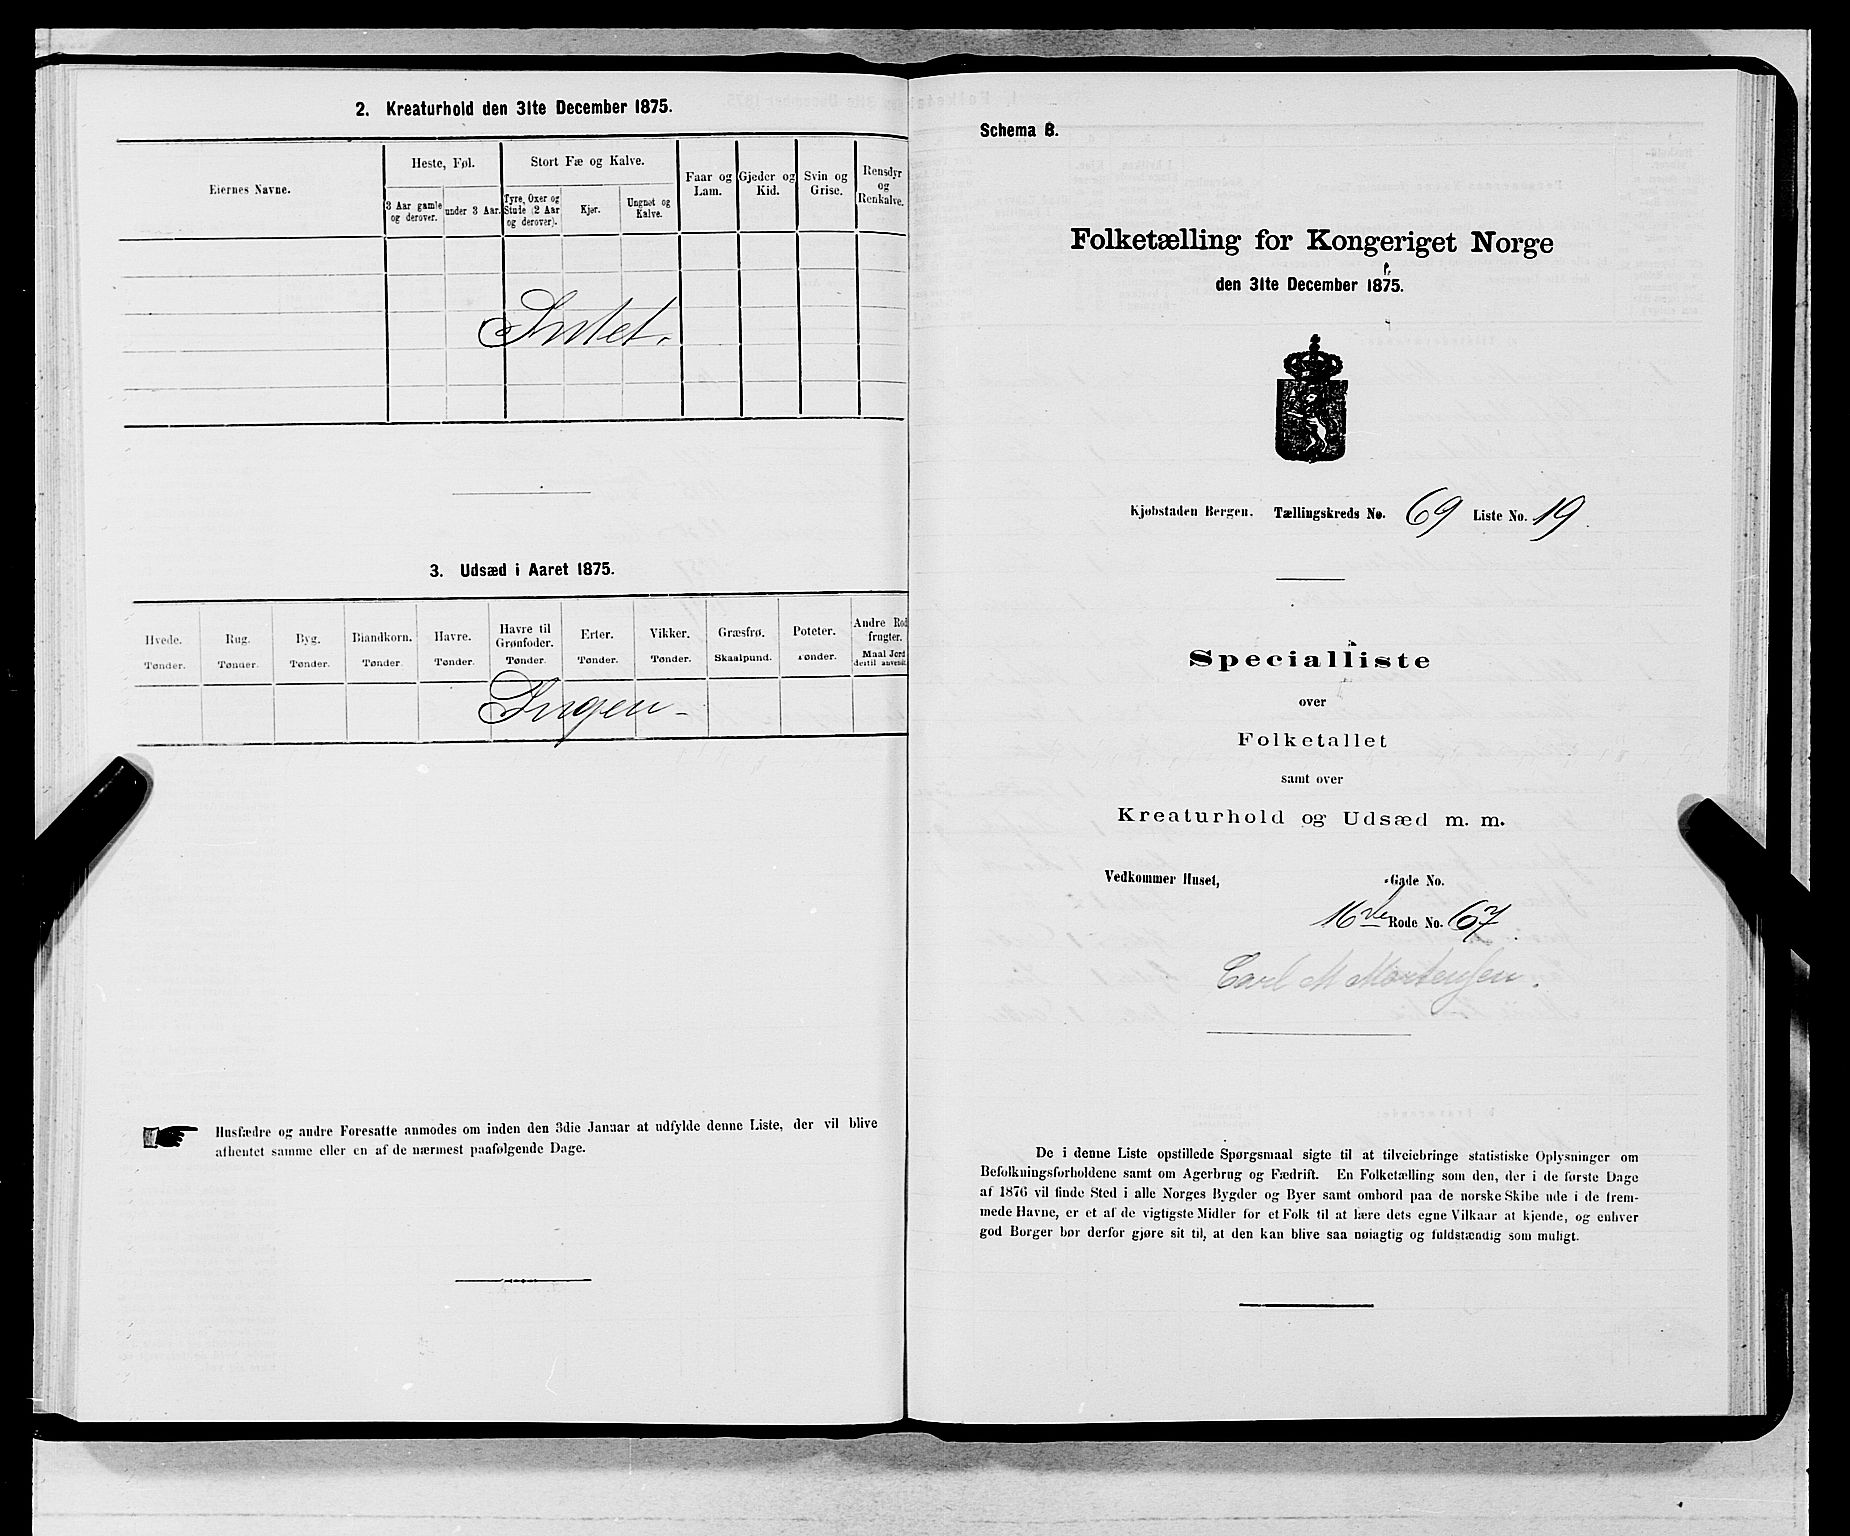 2. Kreaturhold den 31te December 1875.
Eiernes Navne.
Heste, Føl.
3 Aar gamle og derover.
under 3 Aar.
Stort Fæ og Kalve.
Tyre, Oxer og Stude (2 Aar og derover).
Kjør.
Ungnøt og Kalve.
Faar og Lam.
Gjeder og Kid.
Svin og Grise.
Rensdyr og Renkalve.
Intet.
3. Udsæd i Aaret 1875.
Hvede. Tønder.
Rug. Tønder.
Byg. Tønder.
Blandkorn. Tønder.
Havre. Tønder.
Havre til Grønfoder. Tønder.
Erter. Tønder.
Vikker. Tønder.
Græsfrø. Skaalpund.
Poteter. Tønder.
Andre Rod frugter. Maal Jord dertil anvendt
Ingen-
Husfædre og andre Foresatte anmodes om inden den 3die Januar at udfylde denne Liste, der vil blive
afhentet samme eller en af de nærmest paafølgende Dage.
Schema B.
Folketælling for Kongeriget Norge
den 31te December 1875.
Kjøbstaden Bergen. Tællingskreds No. 69 Liste No. 19
Specialliste
over
Folketallet
samt over
Kreaturhold og Udsæd m. m.
Vedkommer Huset, -Gade No.
16de Rode No. 67
Carl M Mortensen.
De i denne Liste opstillede Spørgsmaal sigte til at tilveiebringe statistiske Oplysninger om
Befolkningsforholdene samt om Agerbrug og Fædrift. En Folketælling som den, der i de første Dage
af 1876 vil finde Sted i alle Norges Bygder og Byer samt ombord paa de norske Skibe ude i de frem-
mede Havne, er et af de vigtigste Midler for et Folk til at lære dets egne Vilkaar at kjende, og enhver
god Borger bør derfor gjøre sit til, at den kan blive saa nøiagtig og fuldstændig som muligt.